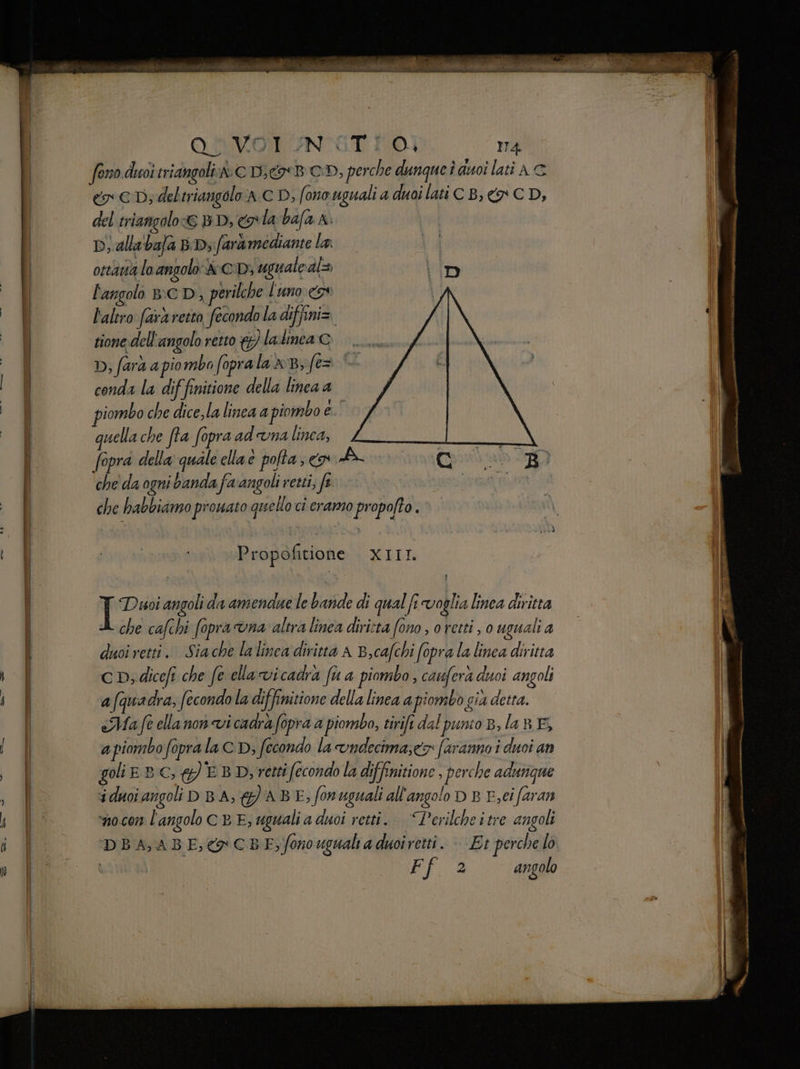 QVINTO. 114
ſono duoi triangoli A C D, & B C D, perche dunque i duoi lati A C
& C D, del triangolo A C D, ſono uguali a duoi lati C B, & C D,
del triangolo C B D, & la baſa A
D, alla baſa B D, ſarà mediante la
ottaua lo angolo A C D, uguale al=
l'angolo B C D, perilche l'uno &
l'altro ſarà retto ſecondo la diffini=
tione dell'angolo retto & la linea C
D, ſarà a piombo ſopra la A B, ſe=
conda la diffinitione della linea a
piombo che dice, la linea a piombo è
quella che ſta ſopra ad vna linea,
ſopra della quale ella è poſta, &
che da ogni banda fa angoli retti, ſi
che habbiamo prouato quello ci eramo propoſto.
D
A C B
Propoſitione XIII.
I Duoi angoli da amendue le bande di qual ſi voglia linea diritta
che caſchi ſopra vna altra linea diritta ſono, o retti, o uguali a
duoi retti. Sia che la linea diritta A B, caſchi ſopra la linea diritta
C D, diceſi che ſe ella vi cadrà ſu a piombo, cauſerà duoi angoli
a ſquadra, ſecondo la diffinitione della linea a piombo gia detta.
Ma ſe ella non vi cadrà ſopra a piombo, tiriſi dal punto B, la B E,
a piombo ſopra la C D, ſecondo la vndecima, & ſaranno i duoi an
goli E B C, & E B D, retti ſecondo la diffinitione, perche adunque
i duoi angoli D B A, & A B E, ſon uguali all'angolo D B E, ei ſaran
no con l'angolo C B E, uguali a duoi retti. Perilche i tre angoli
D B A, A B E, & C B E, ſono uguali a duoi retti. Et perche lo
Ff 2 angolo